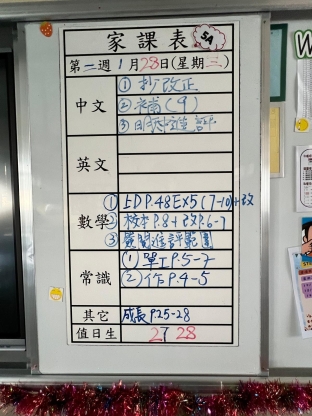 家課表 5A
第二週 1月28日(星期三)
中文 ① 抄改正
② 補(9)
③
英文
數學 ① 上D P.48 EX5(7-10)+改
② 校本P.8+改P.6-7
③ 範圍
常識 (1) 單工P.5-7
(2) 作P.4-5
其它 成長P.25-28
值日生 27 28